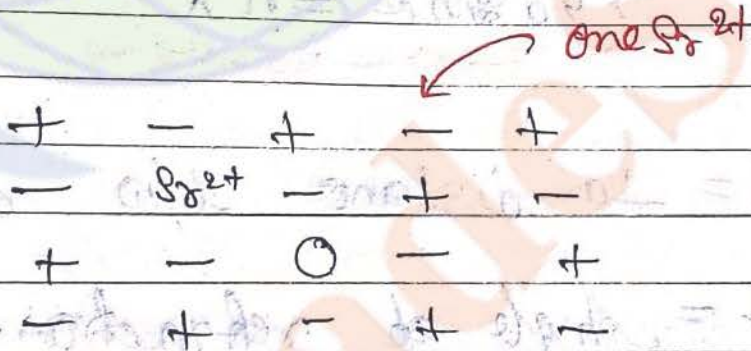 one Sr 2+
+ − + − +
− Sr 2+ − + −
+ − O − +
− + − + −